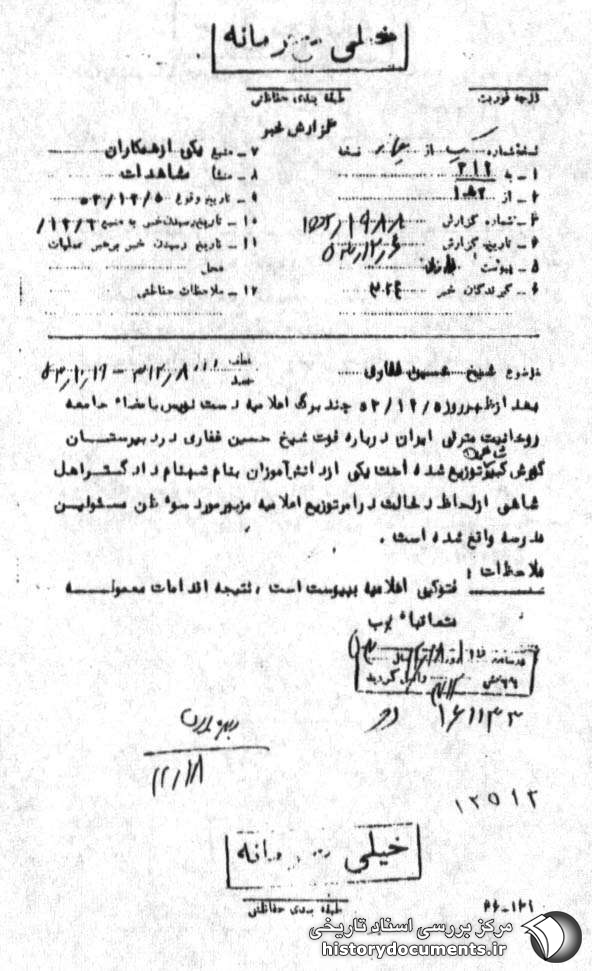 خیلی محرمانه
طبقه بندی حفاظتی
درجه فوریت
گزارش خبر
نسخه شماره از نسخه
۱ــ به ۳۱۲
۲ــ از
۳ــ شماره گزارش
۴ــ تاریخ گزارش
۵ــ پیوست
۶ــ گیرندگان خبر
۷ــ منبع یکی از همکاران
۸ــ منشا مشاهدات
۹ــ تاریخ وقوع ۵۳/۱۲/۵
۱۰ــ تاریخ رسیدن خبر به منبع
۱۱ــ تاریخ رسیدن خبر به رهبر عملیات
محل
۱۲ــ ملاحظات حفاظتی
موضوع شیخ حسین غفاری
بعد از ظهر روز ۵۳/۱۲/۵ چند برگ اعلامیه دست نویس با مضاء جامعه
روحانیت مترقی ایران درباره فوت شیخ حسین غفاری در دبیرستان
کورش کبیر شاهی توزیع شده است یکی از دانش آموزان بنام شهنام دادگستر اهل
شاهی از لحاظ دخالت در امر توزیع اعلامیه مزبور مورد سوء ظن مسئولین
مدرسه واقع شده است .
ملاحظات :
فتوکپی اعلامیه بپیوست است ، نتیجه اقدامات معموله
متعاقباً
۱۶۱۱۴۳
۱۳۵۱۳
خیلی محرمانه
طبقه بندی حفاظتی
مرکز بررسی اسناد تاریخی
historydocuments.ir